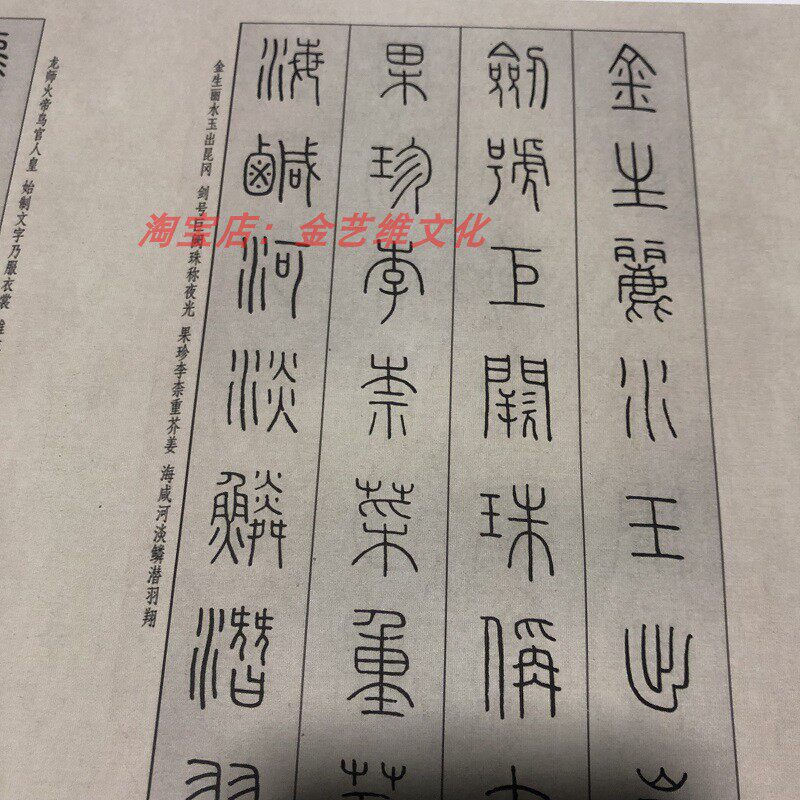 金生麗水玉出
劍號巨闕珠偁
果珍李柰菜重
海鹹河淡鱗潛羽
金生丽水玉出昆冈 剑号巨阙珠称夜光 果珍李柰重芥姜 海咸河淡鳞潜羽翔
龙师火帝鸟官人皇 始制文字乃服衣裳
淘宝店：金艺维文化